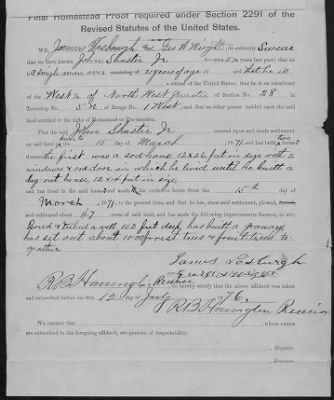 Final Homestead Proof required under Section 2291 of the
Revised Statutes of the United States.
WE, James and Geo H Wright, do solemnly Swear
that we have known John Shuster Jr for 5½ years last past; that he
is a Single man over 21 years of age and that he is
a citizen of the United States; that he is an inhabitant
of the West ½ of North West Quarter of Section No. 28 in
Township No. 5 N of Range No. 1 West, and that no other person resided upon the said
land entitled to the right of Homestead or Pre-emption.
That the said John Shuster Jr entered upon and made settlement
on said land on the 15 day of March 1871, and has built two houses
the first was a sod house 12 x 26 feet in size with 2
windows & on door in which he lived until he built a
dug out house, 12 x 14 feet in size
and has lived in the said and made it his exclusive home from the 15th day of
March 1871, to the present time, and that he has, since said settlement, plowed,
and cultivated about 47 acres of said land, and has made the following improvements thereon, to wit:
Bored & tubed a well 102 feet deep, has built a granary
has set out about 1000 forest trees & fruit trees to
gather
James
Geo H Wright
I, R B Harrington Receiver do hereby certify that the above affidavit was taken
and subscribed before me this 12 day of July 1876.
R B Harrington Receiver
WE CERTIFY that whose names
are subscribed to the foregoing affidavit, are persons of respectability.
, Register.
, Receiver.